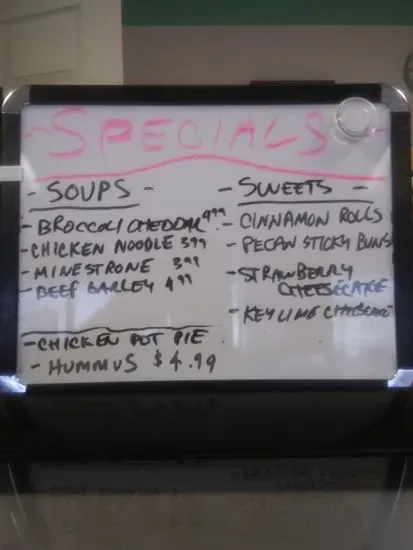 - SPECIALS -
- SOUPS -
- BROCCOLI CHEDDAR 4.99
- CHICKEN NOODLE 3.99
- MINESTRONE 3.99
- BEEF BARLEY 4.99
- CHICKEN POT PIE
- HUMMUS $4.99
- SWEETS -
- CINNAMON ROLLS
- PECAN STICKY BUNS
- STRAWBERRY
CHEESECAKE
- KEYLIME CHEESECAKE